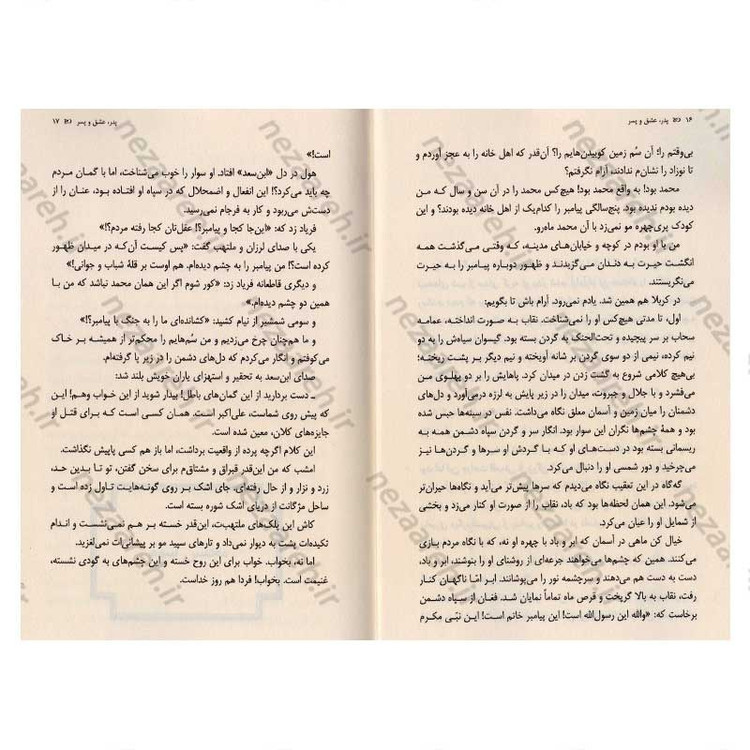 ۱۶ پدر، عشق و پسر
بی‌وقتم را؟ آن سُم زمین کوبیدن‌هایم را؟ آن‌قدر که اهل خانه را به عجز آوردم و
تا نوزاد را نشان‌م ندادند، آرام نگرفتم؟
محمد بود! به واقع محمد بود! هیچ‌کس محمد را در آن سن و سال که من
دیده بودم ندیده بود. پنج‌سالگی پیامبر را کدام‌یک از اهل خانه دیده بودند؟ و این
کودک پری‌چهره مو نمی‌زد با آن محمد ماه‌رو.
من با او بودم در کوچه و خیابان‌های مدینه، که وقتی می‌گذشت همه
انگشت حیرت به دندان می‌گزیدند و ظهور دوباره پیامبر را به حیرت
می‌نگریستند.
در کربلا هم همین شد. یادم نمی‌رود. آرام باش تا بگویم:
اول، تا مدتی هیچ‌کس او را نمی‌شناخت. نقاب به صورت انداخته، عمامه
سحاب بر سر پیچیده و تحت‌الحنک به گردن بسته بود. گیسوان سیاه‌ش را دو
نیم کرده، نیمی از دو سوی گردن بر شانه آویخته و نیم دیگر بر پشت ریخته؛
بی‌هیچ کلامی شروع به گشت زدن در میدان کرد. پاهایش را بر دو پهلوی من
می‌فشرد و با جلال و جبروت، میدان را در زیر پایش به لرزه درمی‌آورد و دل‌های
دشمنان را میان زمین و آسمان معلق نگاه می‌داشت. نفس در سینه‌ها حبس شده
بود و همهٔ چشم‌ها نگران این سوار بود. انگار سر و گردن سپاه دشمن همه به
ریسمانی بسته بود در دست‌های او که با گردش او سرها و گردن‌ها نیز
می‌چرخید و دور شمسی او را دنبال می‌کرد.
گه‌گاه در این تعقیب نگاه می‌دیدم که سرها پیش‌تر می‌آید و نگاه‌ها حیران‌تر
می‌شود. این همان لحظه‌ها بود که باد، نقاب را از صورت او کنار می‌زد و بخشی
از شمایل او را عیان می‌کرد.
خیال کن ماهی در آسمان که ابر و باد با چهره او نه، که با نگاه مردم بازی
می‌کنند. همین که چشم‌ها می‌خواهند جرعه‌ای از روشنای او را بنوشند، ابر و باد،
دست به دست هم می‌دهند و سرچشمه نور را می‌پوشانند. ابر امّا ناگهان کنار
رفت، نقاب به بالا گریخت و قرص ماه تماماً نمایان شد. فغان از سپاه دشمن
برخاست که: «والله این رسول‌الله است! این پیامبر خاتم است! این نبّی مکرم
پدر، عشق و پسر ۱۷
است!»
هول در دل «ابن‌سعد» افتاد. او سوار را خوب می‌شناخت، اما با گمان مردم
چه باید می‌کرد؟! این انفعال و اضمحلال که در سپاه او افتاده بود، عنان را از
دست‌ش می‌ربود و کار به فرجام نمی‌رسید.
فریاد زد که: «این‌جا کجا و پیامبر؟! عقل‌تان کجا رفته مردم؟!»
یکی با صدای لرزان و ملتهب گفت: «پس کیست آن‌که در میدان ظهور
کرده است؟! من پیامبر را به چشم دیده‌ام. هم اوست بر قلهٔ شباب و جوانی!»
و دیگری قاطعانه فریاد زد: «کور شوم اگر این همان محمد نباشد که من با
همین دو چشم دیده‌ام.»
و سومی شمشیر از نیام کشید: «کشانده‌ای ما را به جنگ با پیامبر؟!»
و ما هم‌چنان چرخ می‌زدیم و من سُم‌هایم را محکم‌تر از همیشه بر خاک
می‌کوفتم و انگار می‌کردم که دل‌های دشمن را در زیر پا گرفته‌ام.
صدای ابن‌سعد به تحقیر و استهزای یاران خویش بلند شد:
ـ دست بردارید از این گمان‌های باطل! بیدار شوید از این خواب وهم! این
که پیش روی شماست، علی‌اکبر است. همان کسی است که برای قتل او
جایزه‌های کلان، معین شده است.
این کلام اگرچه پرده از واقعیت برداشت، اما باز هم کسی پاپیش نگذاشت.
امشب که من این‌قدر قبراق و مشتاق‌م برای سخن گفتن، تو تا بدین حد،
زرد و نزار و از حال رفته‌ای. جای اشک بر روی گونه‌هایت تاول زده است و
ساحل مژگانت از دریای اشک شوره بسته است.
کاش این پلک‌های ملتهب‌ت، این‌قدر خسته بر هم نمی‌نشست و اندام
تکیده‌ات پشت به دیوار نمی‌داد و تارهای سپید مو بر پیشانی‌ات نمی‌لغزید.
اما نه، بخواب. خواب برای این روح خسته و این چشم‌های به گودی نشسته،
غنیمت است. بخواب! فردا هم روز خداست.
nezaareh.ir